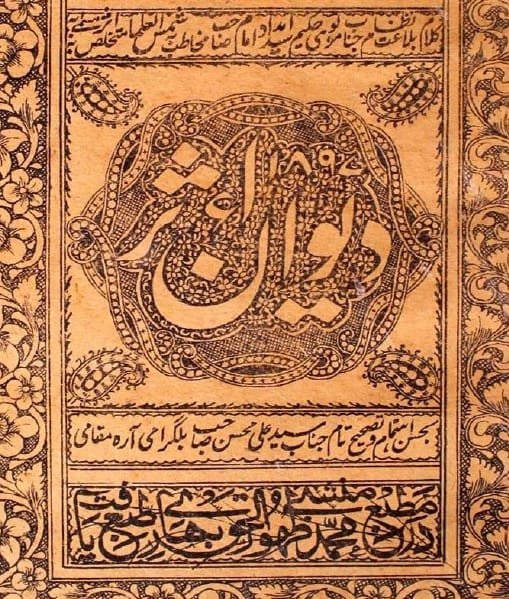 کلام بلاغت نظام جناب مولوی حکیم سید امداد امام صاحب مخاطب شمس العلما متخلص
۱۸۹۷
دیوان اثر
بحسن اہتمام و تصحیح تام جناب سید علی محسن صاحب بلگرامی آرہ مقامی
مطبع منشی محمد ظہور
طبع یافت